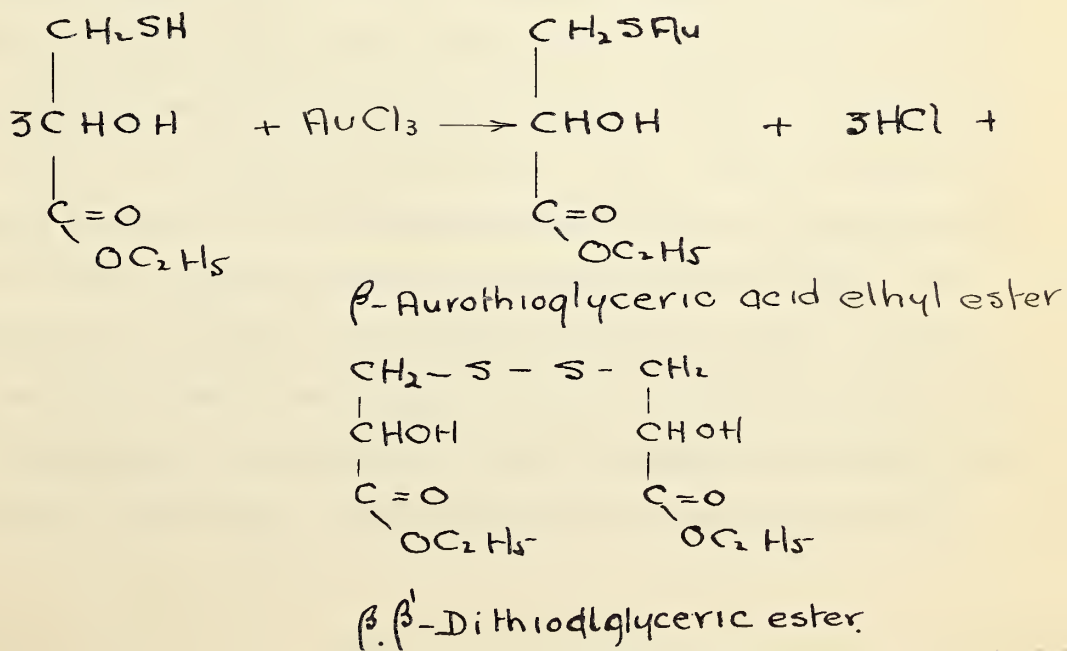 CH₂SH CH₂SAu
3CHOH + AuCl₃ → CHOH + 3HCl +
C=O C=O
OC₂H₅ OC₂H₅
β-Aurothioglyceric acid elhyl ester
CH₂-S-S-CH₂
CHOH CHOH
C=O C=O
OC₂H₅ OC₂H₅
β.β'-Dithiodiglyceric ester.